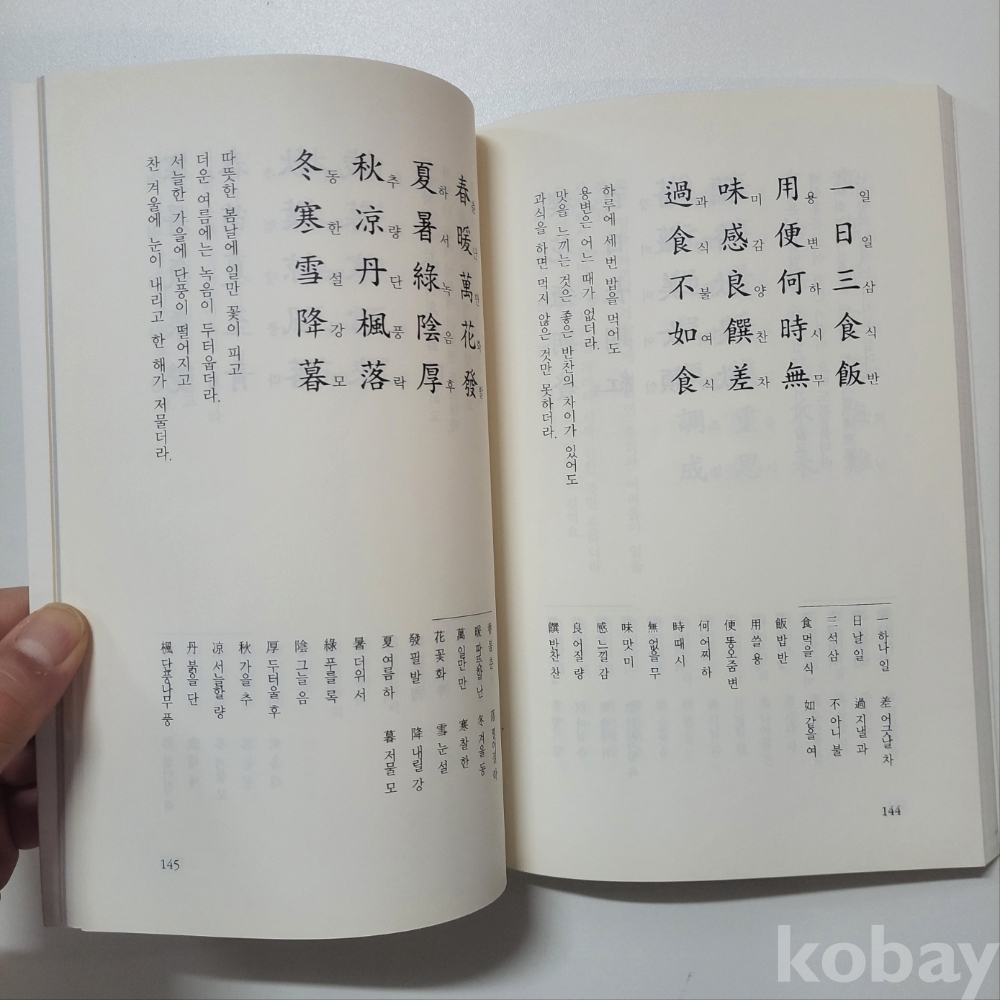 一日三食飯
일일삼식반
用便何時無
용변하시무
味感良饌差
미감양찬차
過食不如食
과식불여식
하루에 세 번 밥을 먹어도
용변은 어느 때가 없더라.
맛을 느끼는 것은 좋은 반찬의 차이가 있어도
과식을 하면 먹지 않은 것만 못하더라.
一 하나 일
日 날 일
三 석 삼
食 먹을 식
飯 밥 반
用 쓸 용
便 똥오줌 변
何 어찌 하
時 때 시
無 없을 무
味 맛 미
感 느낄 감
良 어질 량
饌 반찬 찬
差 어긋날 차
過 지낼 과
不 아니 불
如 같을 여
144
春暖萬花發
夏暑綠陰厚
하서녹음후
秋凉丹楓落
추량단풍락
冬寒雪降暮
동한설강모
따뜻한 봄날에 일만 꽃이 피고
더운 여름에는 녹음이 두터웁더라.
서늘한 가을에 단풍이 떨어지고
찬 겨울에 눈이 내리고 한 해가 저물더라.
暖 따뜻할 난
萬 일만 만
花 꽃 화
發 필 발
夏 여름 하
暑 더위 서
綠 푸를 록
陰 그늘 음
厚 두터울 후
秋 가을 추
凉 서늘할 량
丹 붉을 단
楓 단풍나무 풍
落 떨어질 락
冬 겨울 동
寒 찰 한
雪 눈 설
降 내릴 강
暮 저물 모
145
kobay